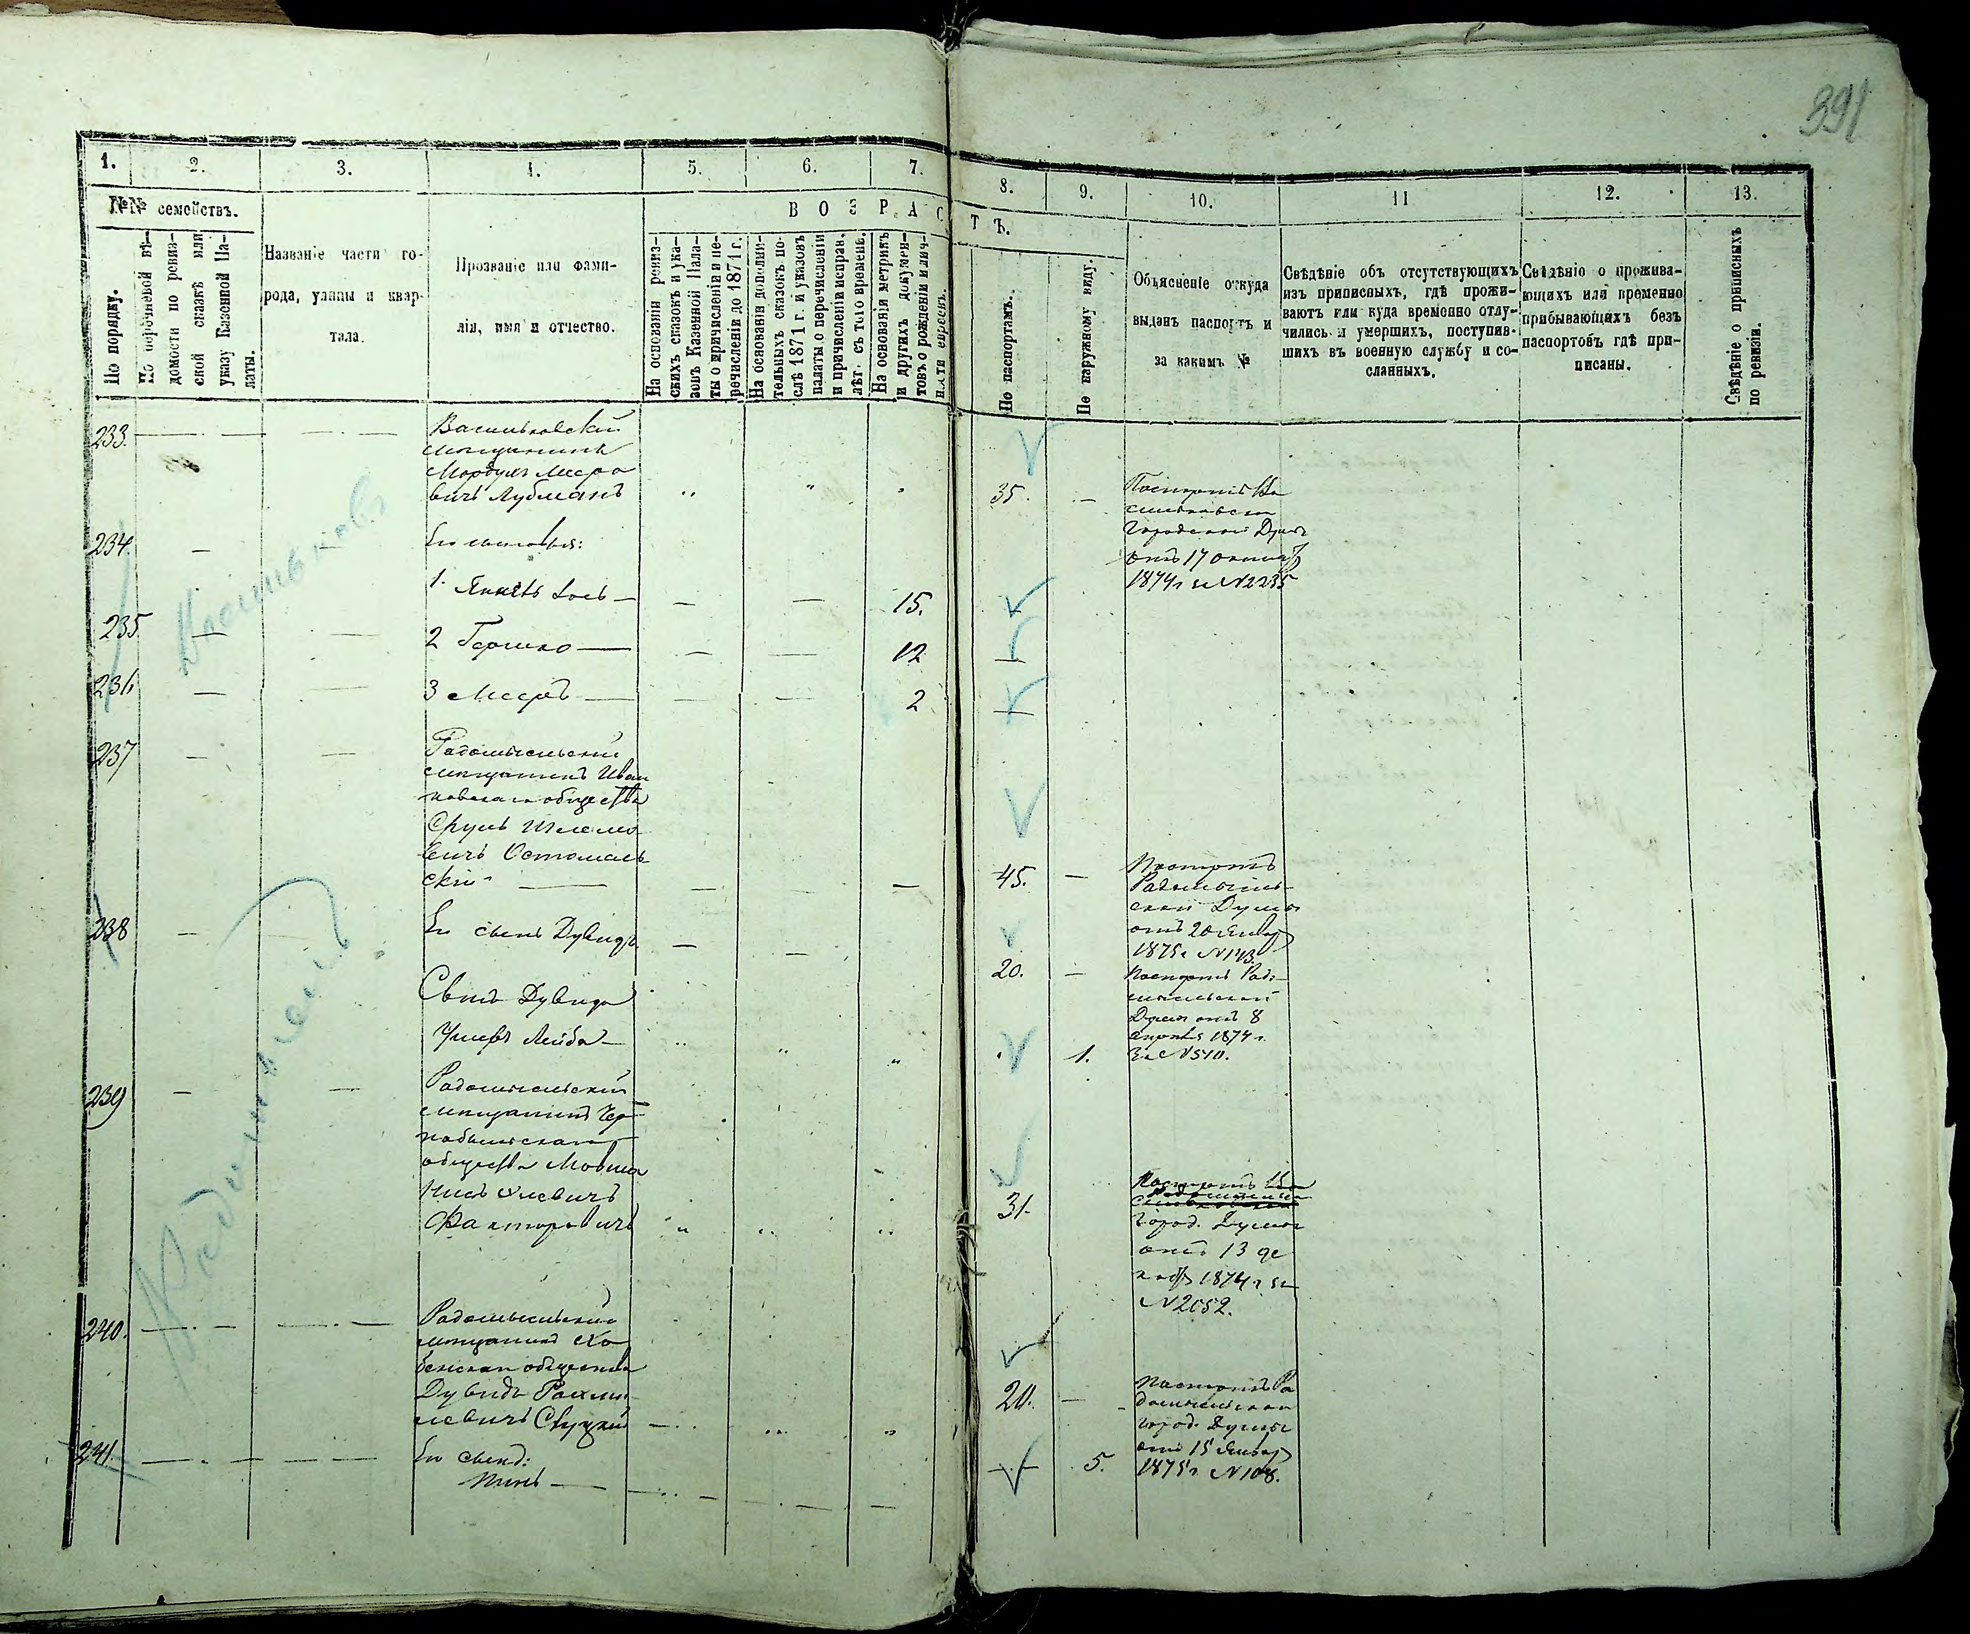 391
1.
2.
3.
4.
5.
6.
7.
8.
9.
10.
11
12.
13.
№№ семействъ.
По порядку.
По перечневой вѣ-
домости по ревиз-
ской сказкѣ или
указу Казенной Па-
латы.
Названіе части го-
рода, улицы и квар-
тала.
Прозваніе или фами-
лія, имя и отчество.
ВОЗРАС
ТЪ.
На основаніи ревиз-
скихъ сказокъ и ука-
зовъ Казенной Пала-
ты о причисленіи и пе-
речисленіи до 1871 г.
На основаніи дополни-
тельныхъ сказокъ по-
слѣ 1871 г. и указовъ
палаты о перечисленіи
и причисленіи исправ.
лѣт. съ того времене.
На основаніи метрикъ
и другихъ докумен-
товъ о рожденіи и лич-
ности евреевъ.
По паспортамъ.
По наружному виду.
Объясненіе откуда
выданъ паспортъ и
за какимъ №
Свѣдѣніе объ отсутствующихъ
изъ приписныхъ, гдѣ прожи-
ваютъ или куда временно отлу-
чились и умершихъ, поступив-
шихъ въ военную службу и со-
сланныхъ.
Свѣдѣніе о прожива-
ющихъ или временно
прибывающихъ безъ
паспортовъ гдѣ при-
писаны.
Свѣдѣніе о приписныхъ
по ревизіи.
233.
Васильковскій
мещанинъ
Мордухъ Мееро
вичъ Лубманъ
35.
Паспортъ Ва
сильковской
Городской Думы
отъ 17 октяб
1874 г за №2235
234.
Его сыновья:
1. Янкель Іось
15.
235.
2 Гершко
12
236
3 Мееръ
2
237
Радомысльскій
мещанинъ Иван
ковскаго общества
Сруль Шлемо
вичъ Остомель
скій
45.
Паспортъ
Радомысль-
ской Думы
отъ 20 Янвр
1875 г №143.
238
Его сынъ Дувидъ
20.
Паспортъ Радо-
мысльской
Думы отъ 8
апрѣля 1874 г.
За №540.
Сынъ Дувида
Ушеръ Лейба
1.
239
Радомысльскій
мещанинъ Чер
нобыльскаго
общества Мовша
Факторовичъ
31.
Паспортъ
город. Думы
отъ 13 де
кабр 1874 г за
№2052.
240.
Радомысльскій
мещанинъ Ха
бенскаго общества
Дувидъ Рахми
левичъ Слуцкій
20.
Паспортъ Ра
домысльской
город. Думы
отъ 15 Январ
1875 г №108.
241.
Его сынъ:
5.